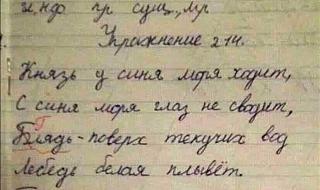 гл, нфо пр сущ., мр
Упражнение 214.
Князь у синя моря ходит,
С синя моря глаз не сводит,
Блядь - поверх текучих вод
Лебедь белая плывёт.